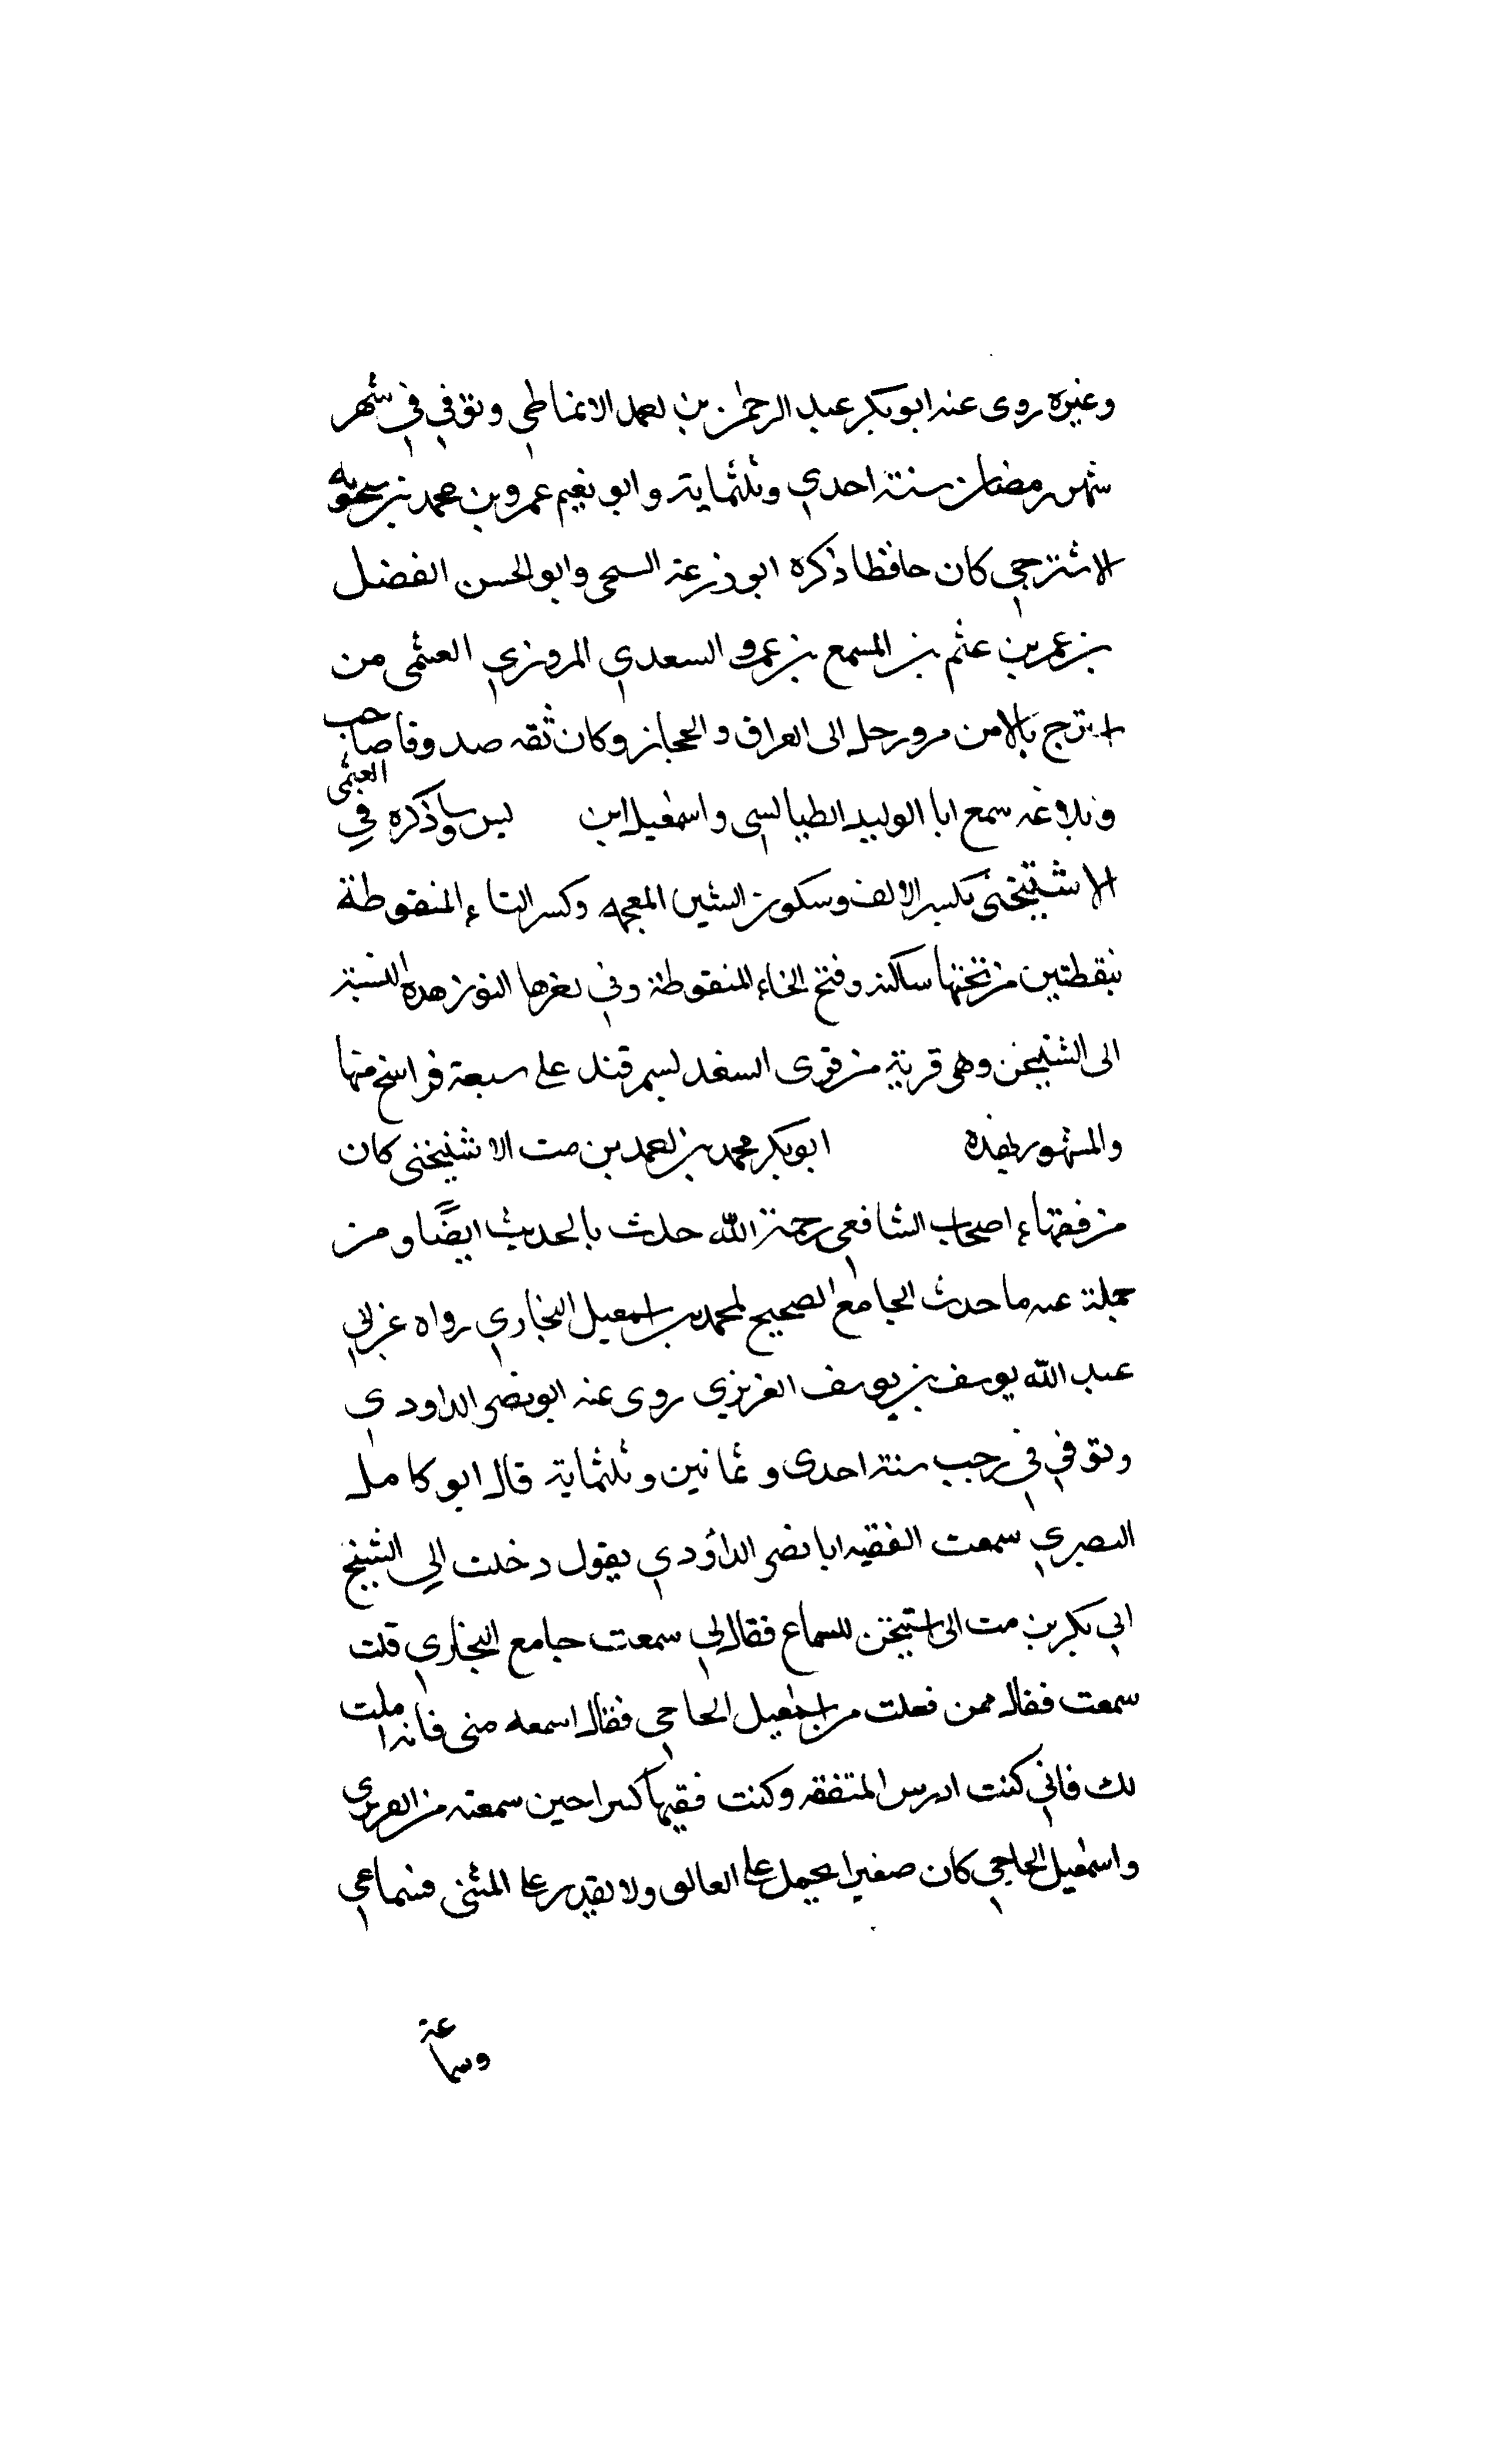 وغيره روى عنه ابو بكر عبد الرحمن بن احمد الانماطي وتوفي في شهر
شهر رمضان سنة احدي وثلثماية وابو نعيم عمرو بن محمد بن
الاشترجي كان حافظا ذكره ابو زرعة السحى وابو الحسن الفضل
بن عمر بن عثم بن المسمع بن عمرو السعدي المروزي العثمى من
اشترج بالا من مرو رحل الى العراق والحجاز وكان ثقه صدوقا صاحب
وبلاغه سمع ابا الوليد الطيالسي واسمعيل ابن ليس وذكره في العثمى
الاشتيخنى بكسر الالف وسكون الشين المعجمه وكسر التاء المنقوطة
بنقطتين من تحتها ساكنة وفتح الخاء المنقوطة وفي اخرها النون هذه النسبة
الى اشتيخن وهى قرية من قرى السغد لسمرقند على سبعة فراسخ منها
والمشهور بهذه ابو بكر محمد بن احمد بن مت الاشتيخنى كان
من فقهاء اصحاب الشافعي رحمة الله حدث بالحديث ايضًا ومن
جملة عنه ما حدث الجامع الصحيح لمحمد بن اسمعيل البخاري رواه عن ابي
عبد الله يوسف بن يوسف الفربري روى عنه ابو نصر الداودي
وتوفي في رجب سنة احدى وثمانين وثلثماية قال ابو كامل
البصري سمعت الفقيه ابا نصر الداؤدي يقول دخلت الي الشيخ
ابي بكر بن مت الى اشتيخن للسماع فقال لي سمعت جامع البخاري قلت
سمعت فقال ممن فعلت من اسمعيل الحاجي فقال اسمعه منى فانه املت
لك فاني كنت ادرس المتفقه وكنت فقيها كبيرا حين سمعته من الفربري
واسمعيل الحاجي كان صغيرا يحمل على العالق ولا يقدر على المشى فسماعي
وسماعة